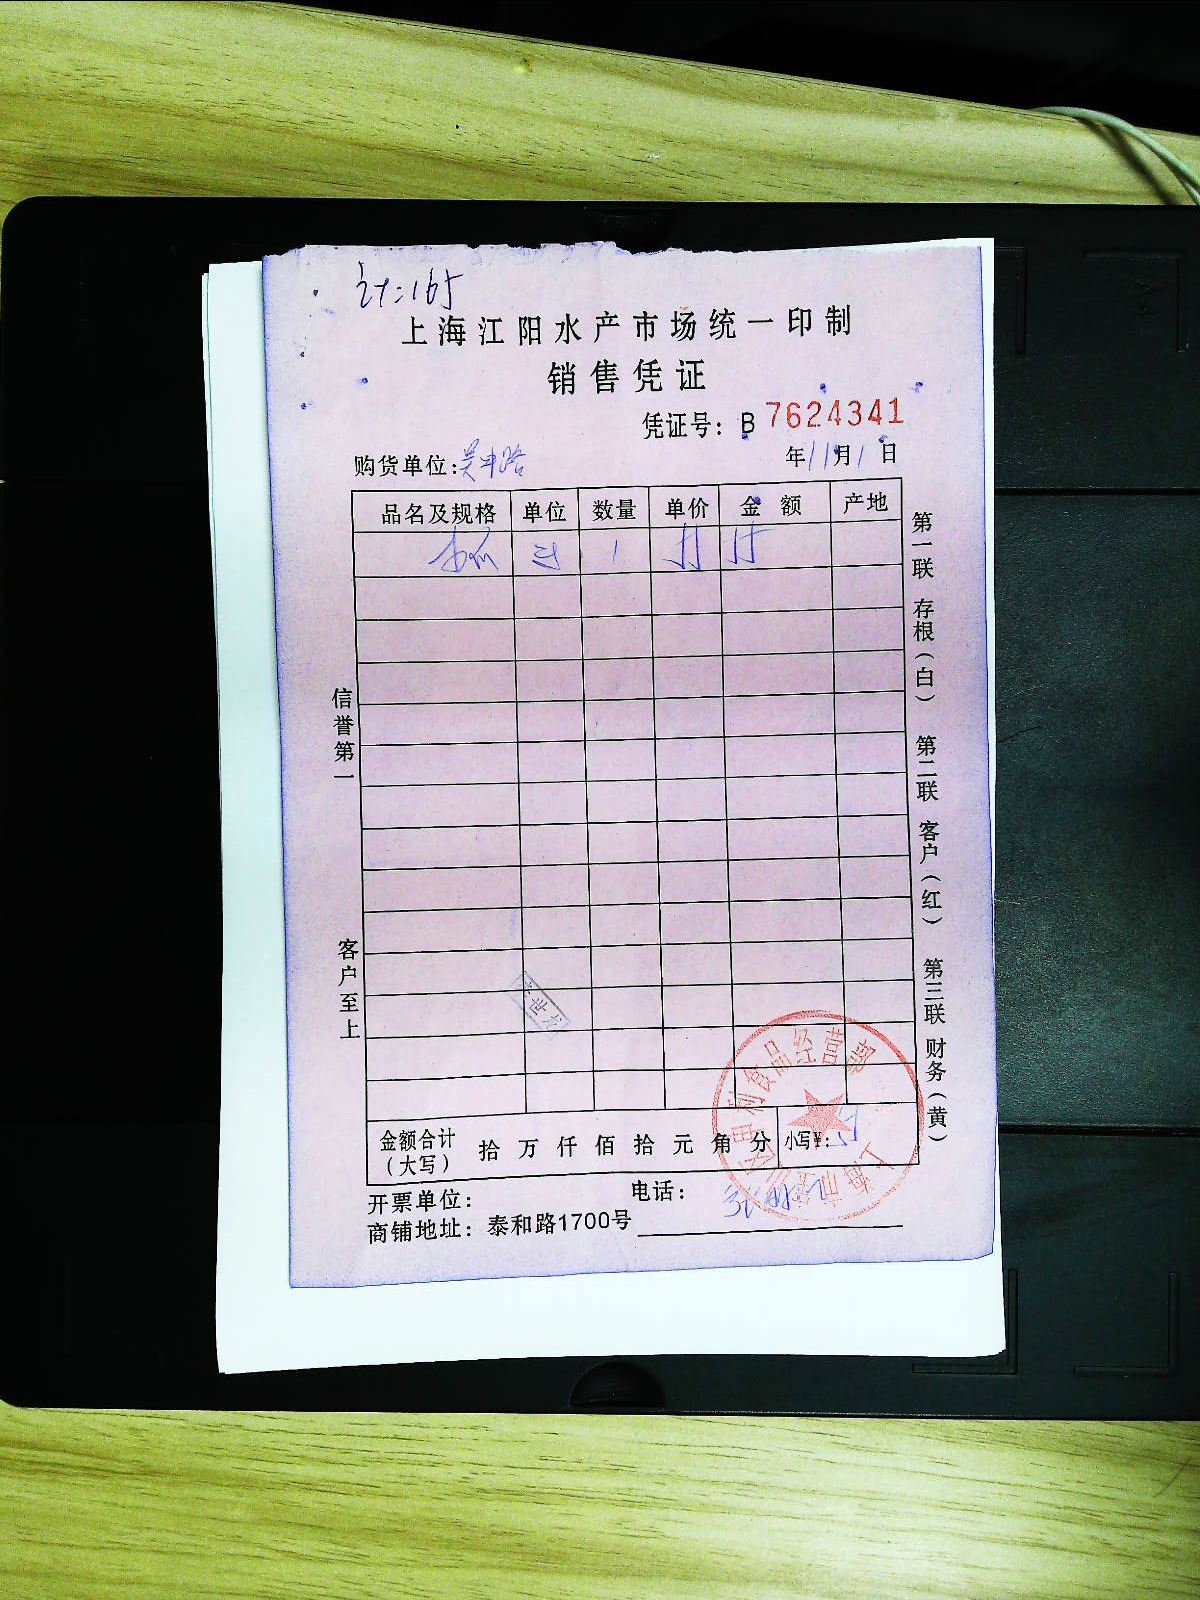 计:165
上海江阳水产市场统一印制
销售凭证
凭证号：B 7624341
购货单位：吴中路
年11月1日
品名及规格 单位 数量 单价 金额 产地
1
信誉第一
客户至上
第一联 存根（白） 第二联 客户（红） 第三联 财务（黄）
金额合计（大写） 拾 万 仟 佰 拾 元 角 分 小写¥：
开票单位：
电话：
商铺地址：泰和路1700号
食品经营部
上海市宝山区